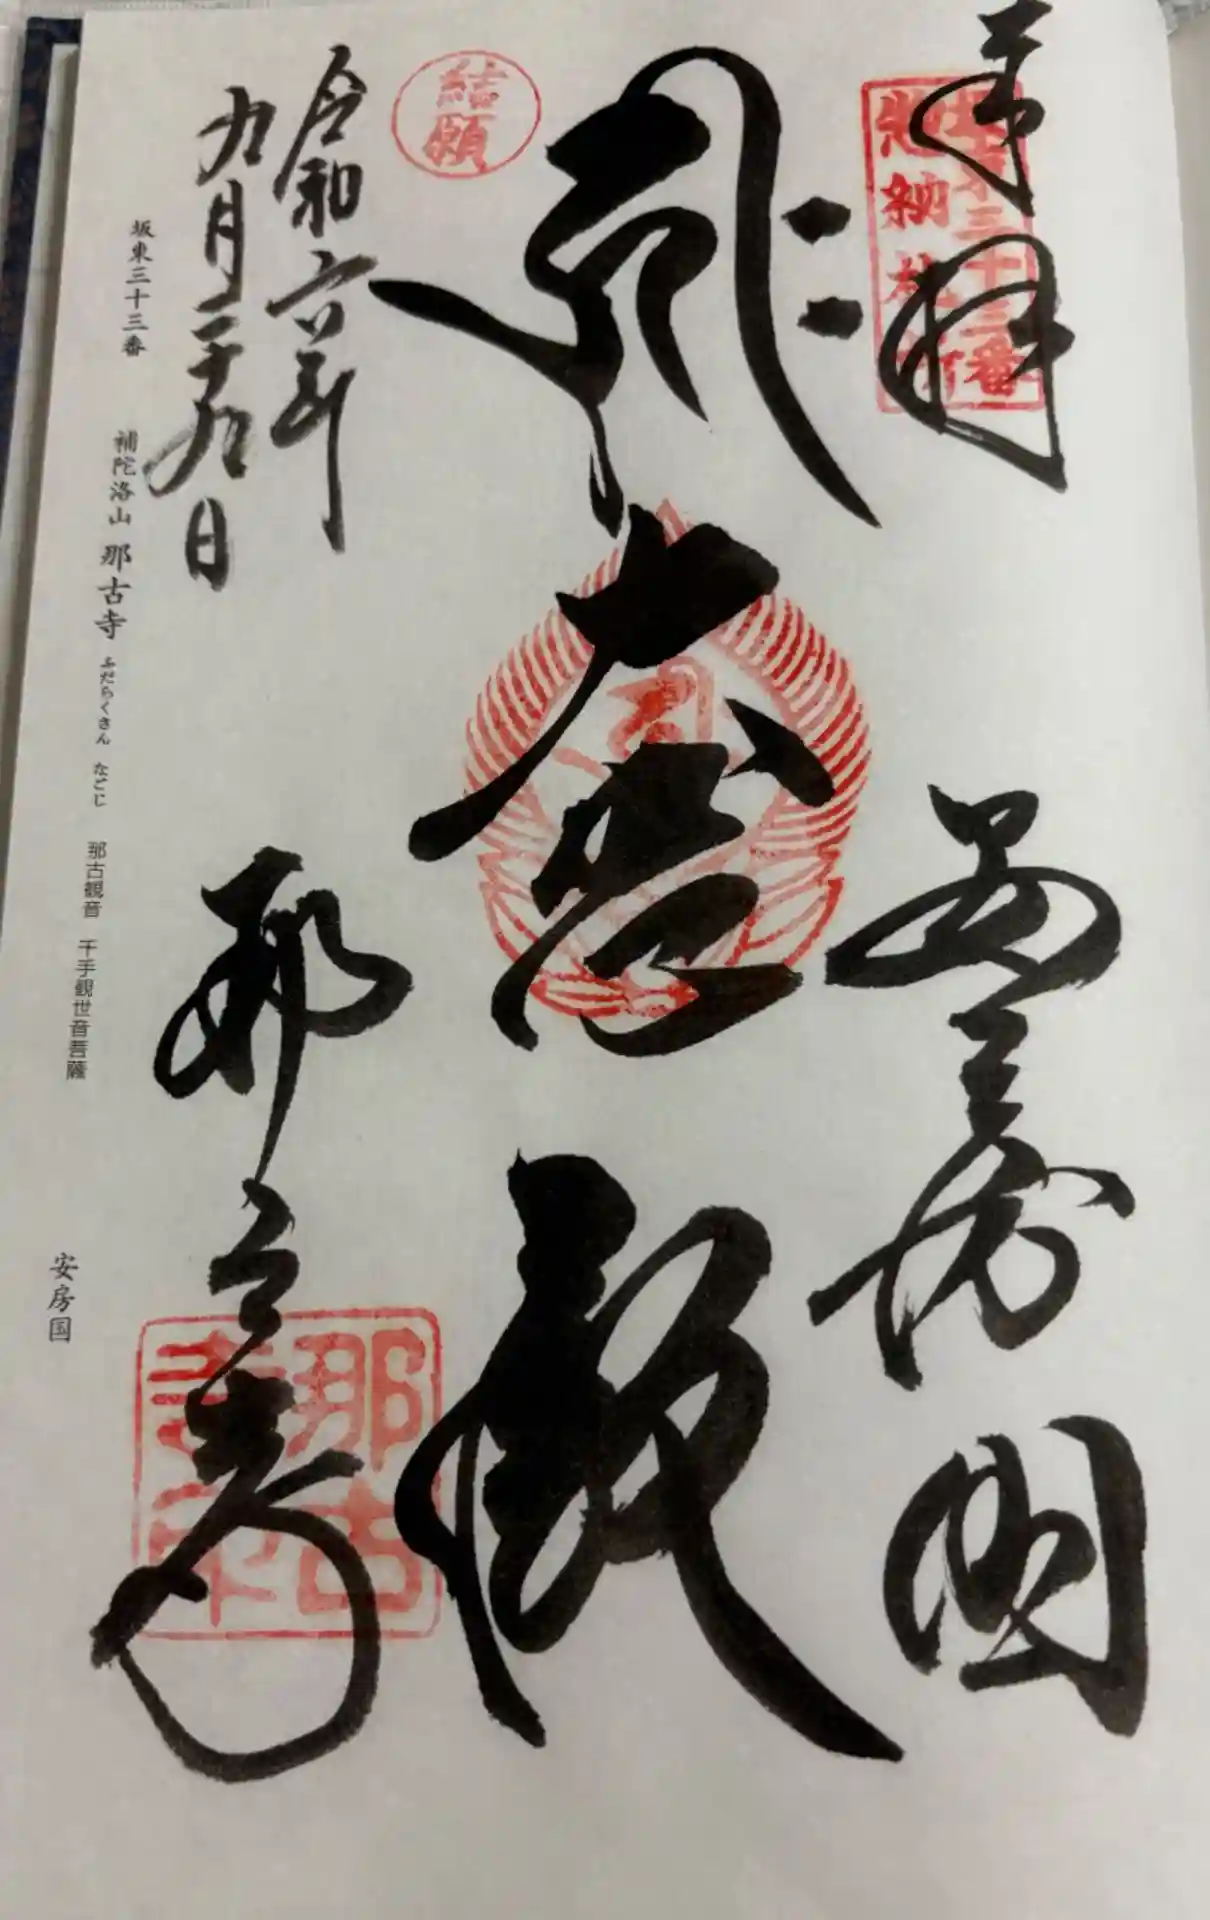 奉拝
坂東第三十三番
巡納札所
安房國
大悲殿
結願
令和六年
九月二十九日
那古寺
那古
坂東三十三番 補陀洛山 那古寺 ふだらくさん なごじ 那古観音 千手観世音菩薩 安房国